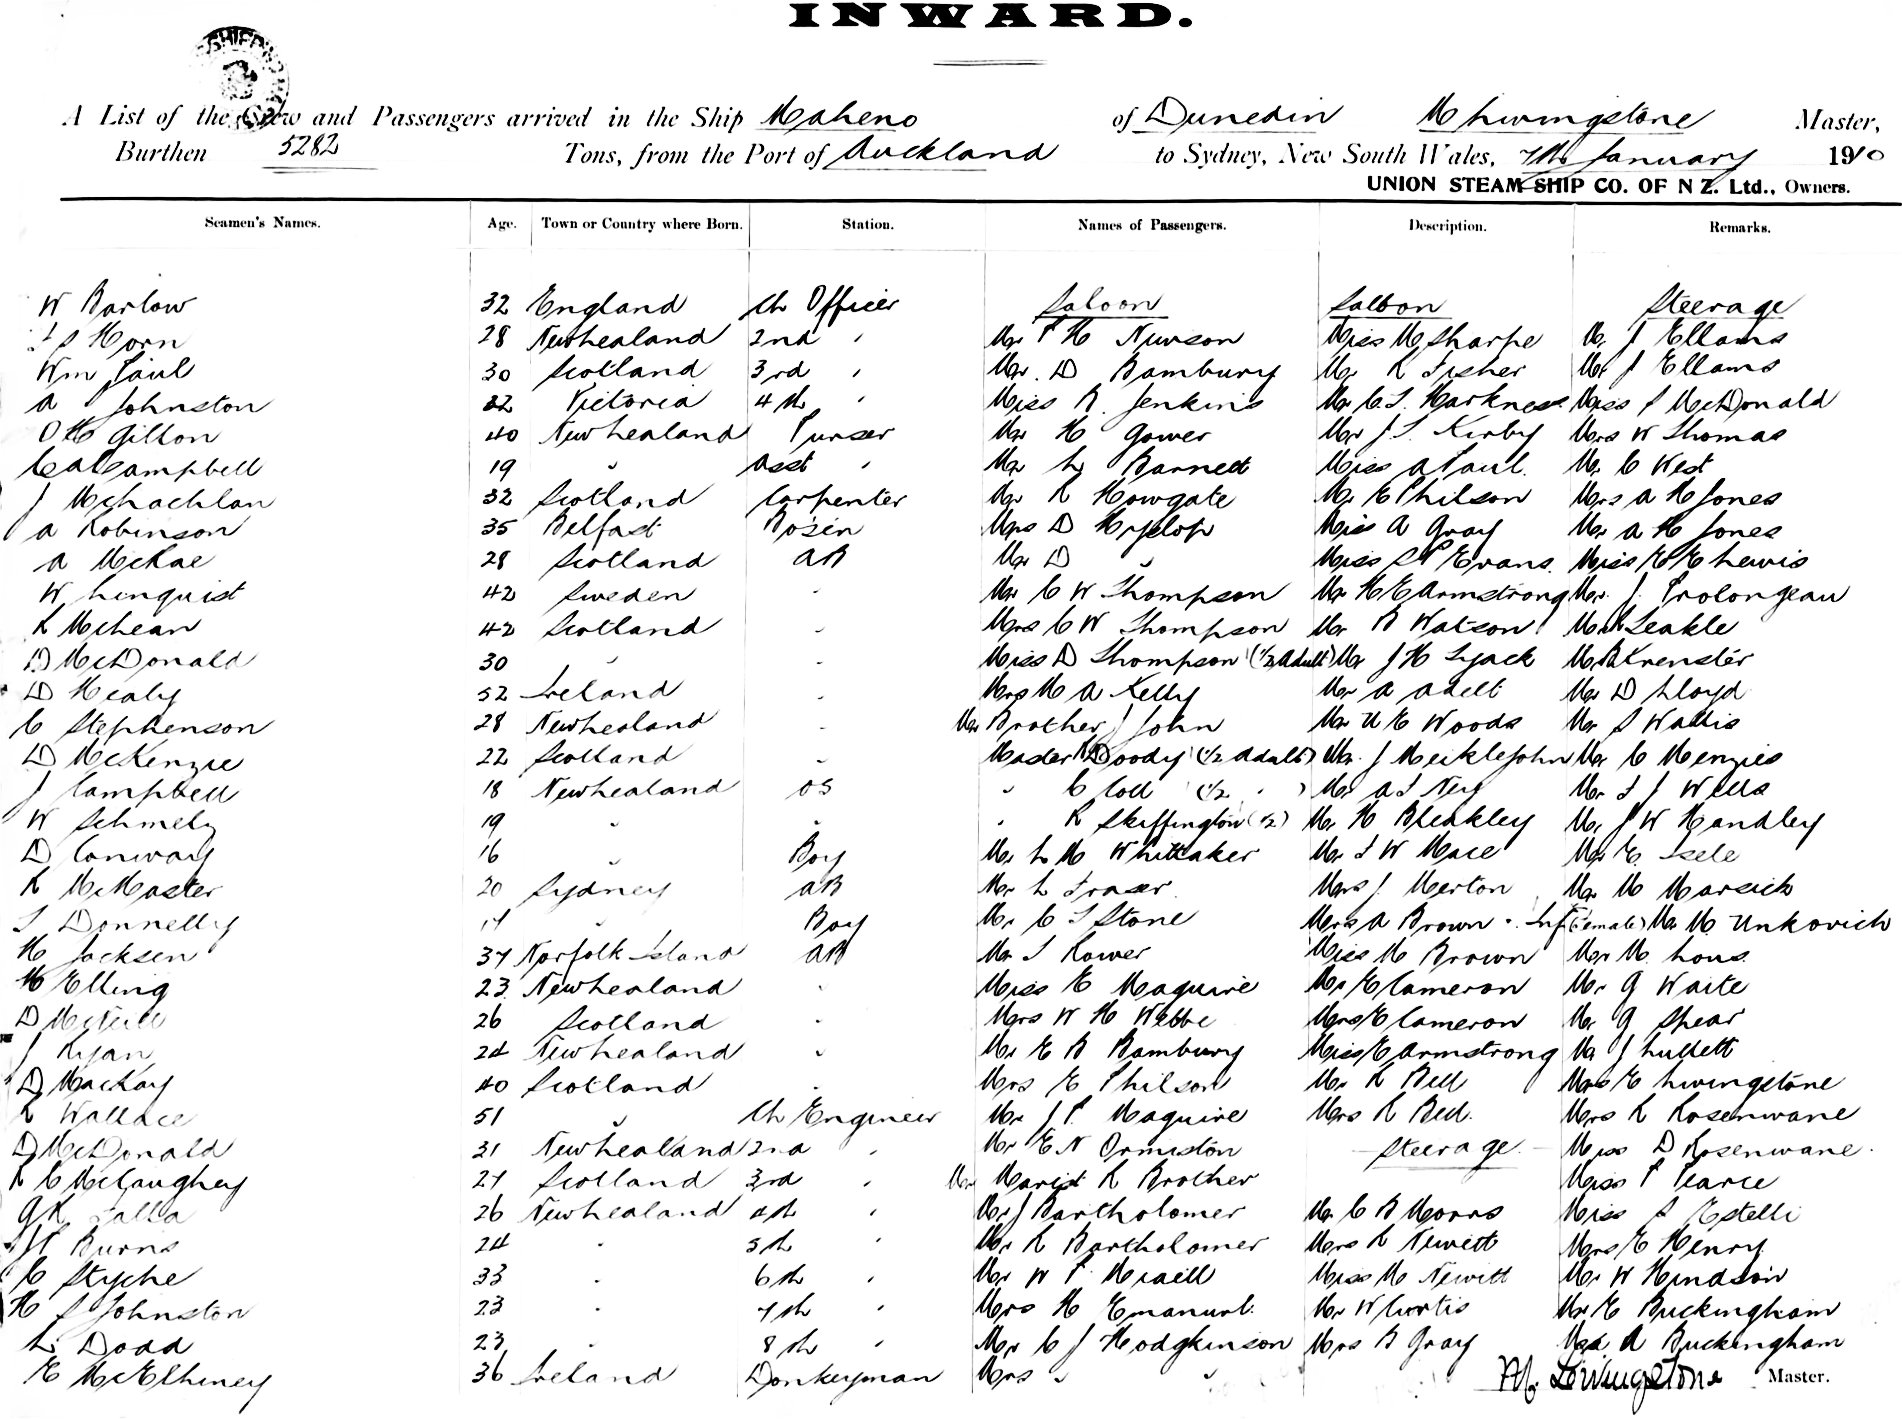 INWARD.
A List of the Crew and Passengers arrived in the Ship Maheno of Dunedin M Livingstone Master,
Burthen 5282 Tons, from the Port of Auckland to Sydney, New South Wales, 7th January 1910
UNION STEAM SHIP CO. OF N Z. Ltd., Owners.
Seamen's Names. Age. Town or Country where Born. Station. Names of Passengers. Description. Remarks.
W Barlow 32 England Ch Officer Saloon Saloon Steerage
Horn 28 New Zealand 2nd " Mr P H Newson Miss M Sharpe Mr J Ellams
Wm Paul 30 Scotland 3rd " Mr. D Bambury Mr R Fisher Mr J Ellams
A Johnston 22 Victoria 4th " Miss R. Jenkins Mr C.S. Harkness Miss S McDonald
O H Gillon 40 New Zealand Purser Mr H Gower Mr J S. Kirby Mrs W Thomas
C A Campbell 19 " Asst " Mr L Barnett Miss A Paul. Mr C West
J McLachlan 32 Scotland Carpenter Mr R Howgate Mr E Philson Mrs A H Jones
A Robinson 35 Belfast Bo'sin Mrs D Hyslop Miss A Gray Mr A H Jones
A McRae 28 Scotland AB Mr D " Miss S P Evans. Miss E E Lewis
W Linquist 42 Sweden " Mr C W Thompson Mr H E Armstrong Mr. J. Prolongeau
R McLean 42 Scotland " Mrs C W Thompson Mr R Watson Leakle
D McDonald 30 " " Miss D Thompson (1/2 Adult) Mr J H Tyack
D Healy 52 Ireland " Mrs M A Kelly Mr A Adelt Mr D Lloyd
C Stephenson 28 New Zealand " Mr Brother J John Mr U E Woods Mr S Wallis
D McKenzie 22 Scotland " Master Doody (1/2 Adult) Mr. J Meiklejohn Mr C Menzies
J Campbell 18 New Zealand OS " C Coll (1/2 " ) Mr A S Ney Mr F J Wells
W Schmely 19 " " " R Skeffington (1/2) Mr H Bleakley Mr J W Handley
D Conway 16 " Boy Mr L M Whittaker Mr F W Mace Mr E Isele
R McMaster 20 Sydney AB Mr L Fraser. Mrs J Merton Mr M Marsich
T Donnelly 17 " Boy Mr C T Stone Mrs A Brown & Inf (Female) Mr M Unkovich
H Jacksen 37 Norfolk Island AB Mr T Rower Miss M Brown Mr M. Lous.
H Elling 23 New Zealand " Miss E Maguire Mr E Cameron Mr G Waite
D McNeill 26 Scotland " Mrs W H Webbe Mrs E Cameron Mr G Spear
J Ryan 24 New Zealand " Mr E B Bambury Miss E Armstrong Mr J Lullett
D MacKay 40 Scotland " Mrs E Philson Mr R Bell Mrs E Livingstone
R Wallace 51 " Ch Engineer Mr J P. Maguire Mrs R Bell. Mrs R Rosenwane
D McDonald 31 New Zealand 2nd " Mr E N Ormiston Steerage Miss D Rosenwane.
R C McGaughey 27 Scotland 3rd " Mr Marist R Brother Miss P Pearce
G R Falla 26 New Zealand 4th " Mr J Bartholomer Mr C B Morris Miss S Estelli
Burns 24 " 5th " Mr R Bartholomer Mrs R Newitt Mrs E Henry
C Styche 33 " 6th " Mr W P. Miaill Miss M Newitt Mr W Hindson
H S Johnston 23 " 7th " Mrs H Emanuel. Mr W Curtis Mr E Buckingham
L Dodd 23 " 8th " Mr C J Hodgkinson Mrs B Gray A Buckingham
E McElhiney 36 Ireland Donkeyman Mrs " " M. Livingstone Master.